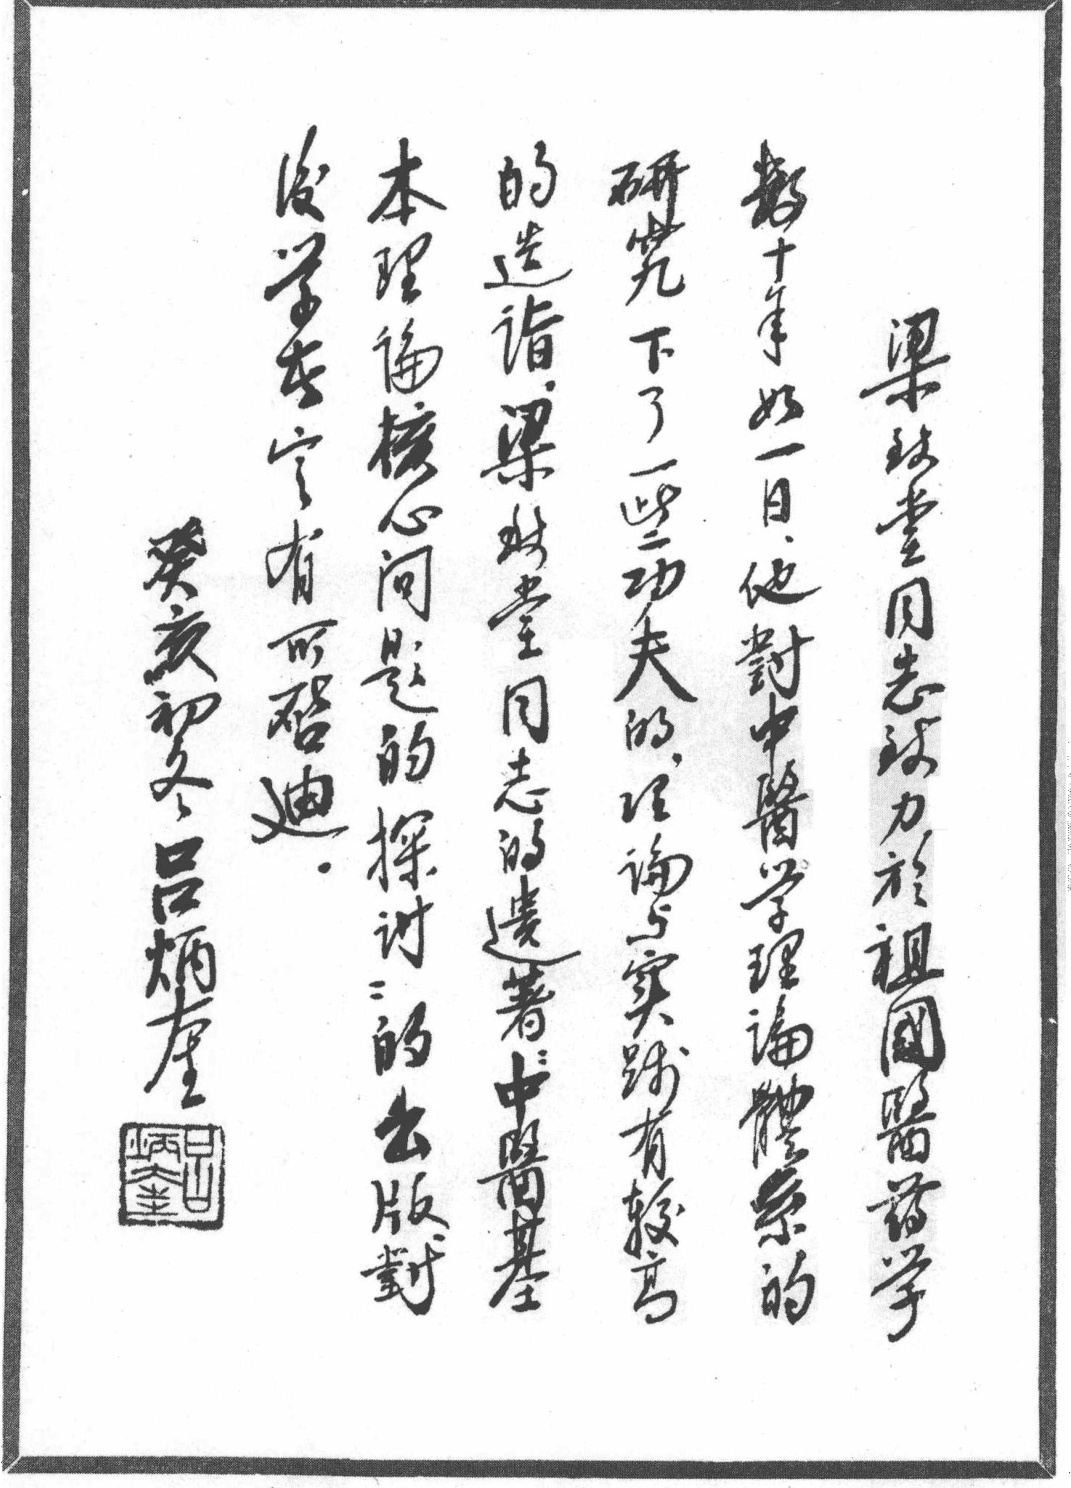 梁致堂同志致力於祖國醫药学
数十年如一日、他對中醫学理論體系的
研究下了一些功夫的、理論与实践有较高
的造詣、梁致堂同志的遗著"中醫基
本理論核心问题的探讨"的出版、對
後学者定有所啓迪.
癸亥初冬 吕炳奎
吕炳奎